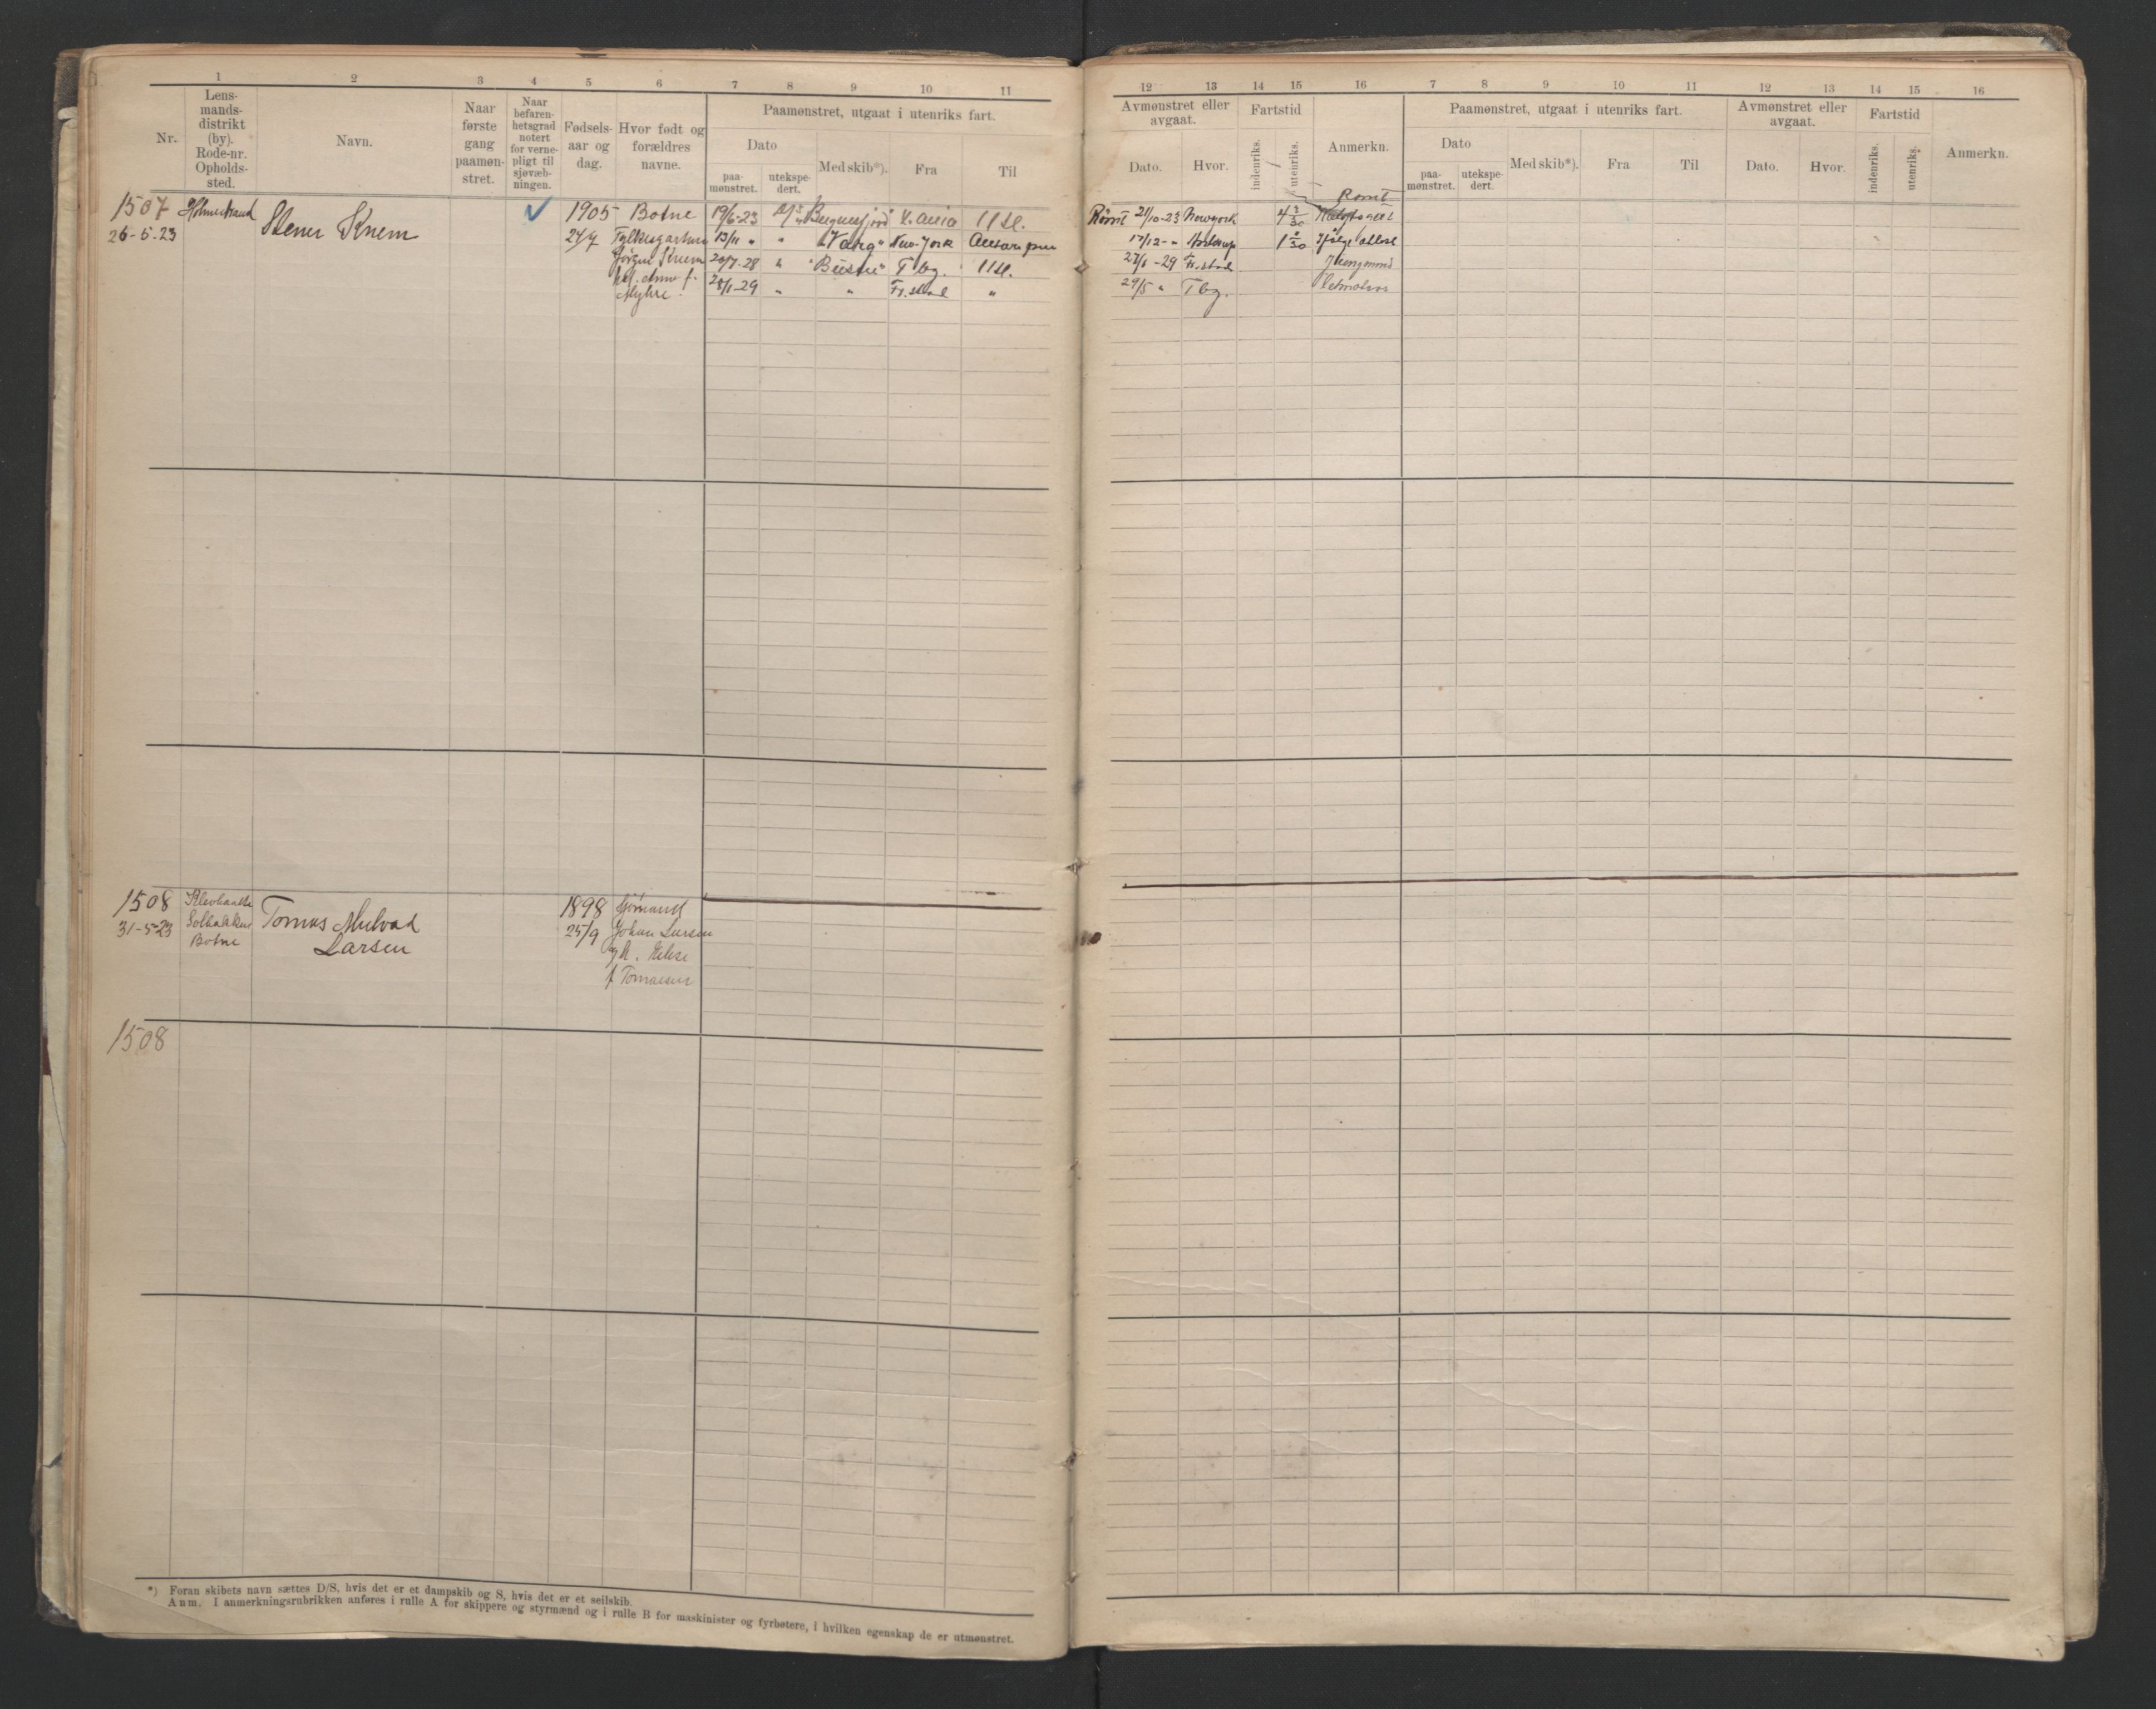 1 2 3 4 5 6 7 8 9 10 11
Nr.
Lens-
mands-
distrikt
(by).
Rode-nr.
Opholds-
sted.
Navn.
Naar
første
gang
paamøn-
stret.
Naar
befaren-
hetsgrad
notert
for verne-
pligt til
sjøvæb-
ningen.
Fødsels-
aar og
dag.
Hvor født og
forældres
navne.
Paamønstret, utgaat i utenriks fart.
Dato
paa-
mønstret.
utekspe-
dert.
Med skib*).
Fra
Til
1507 Holmestrand Stener Knem ✓ 1905 Botne 19/6-23 Bergensfjord K.ania Utl.
26-5-23 24/7 13/11 " " "Varg" New-York
Jörgen Knem 20/7-28 " Tbg. Utl.
28/1-29 " " Fr.stad "
Myhre.
1508 1898
31-5-23 Solbakken Tomas Mulvad 25/9 Johan Larsen
Botne Larsen
f Tomassen
1508
*) Foran skibets navn sættes D/S, hvis det er et dampskib og S, hvis det er et seilskib.
Anm. I anmerkningsrubrikken anføres i rulle A for skippere og styrmænd og i rulle B for maskinister og fyrbøtere, i hvilken egenskap de er utmønstret.
12 13 14 15 16 7 8 9 10 11 12 13 14 15 16
Avmønstret eller
avgaat.
Dato.
Hvor.
Fartstid
indenriks.
utenriks.
Anmerkn.
Paamønstret, utgaat i utenriks fart.
Dato
paa-
mønstret.
utekspe-
dert.
Med skib*).
Fra
Til
Avmønstret eller
avgaat.
Dato.
Hvor.
Fartstid
indenriks.
utenriks.
Anmerkn.
Römt
Römt 21/10-23 Newyork 4 3/30
17/12 - " 1 ifölge attest
27/1-29 Fr.stad Jungmand
29/5 " Tbg. Letmatros